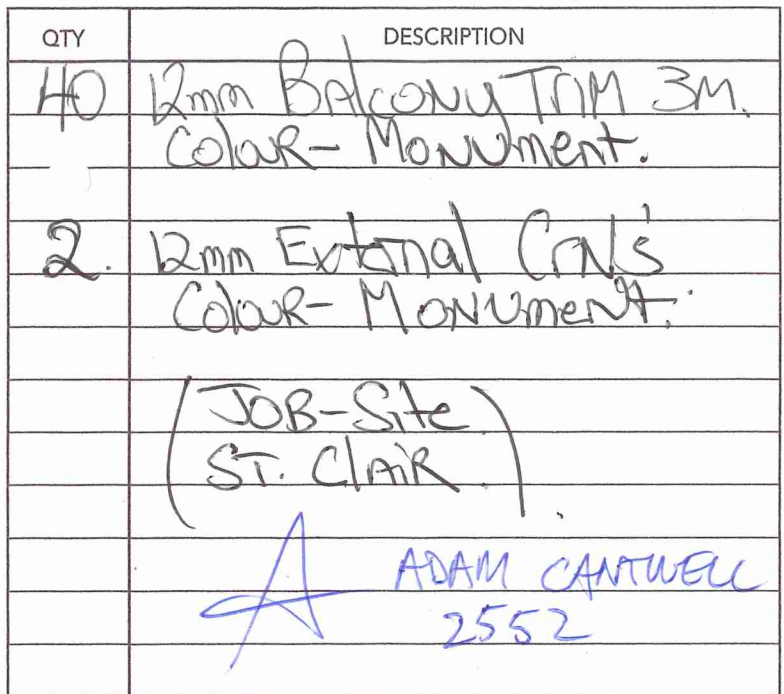 QTY DESCRIPTION
40 12mm Balcony Trim 3M.
Colour - Monument.
2. 12mm External Crn's
Colour - Monument.
(JOB-Site
ST. Clair).
ADAM CANTWELL
2552